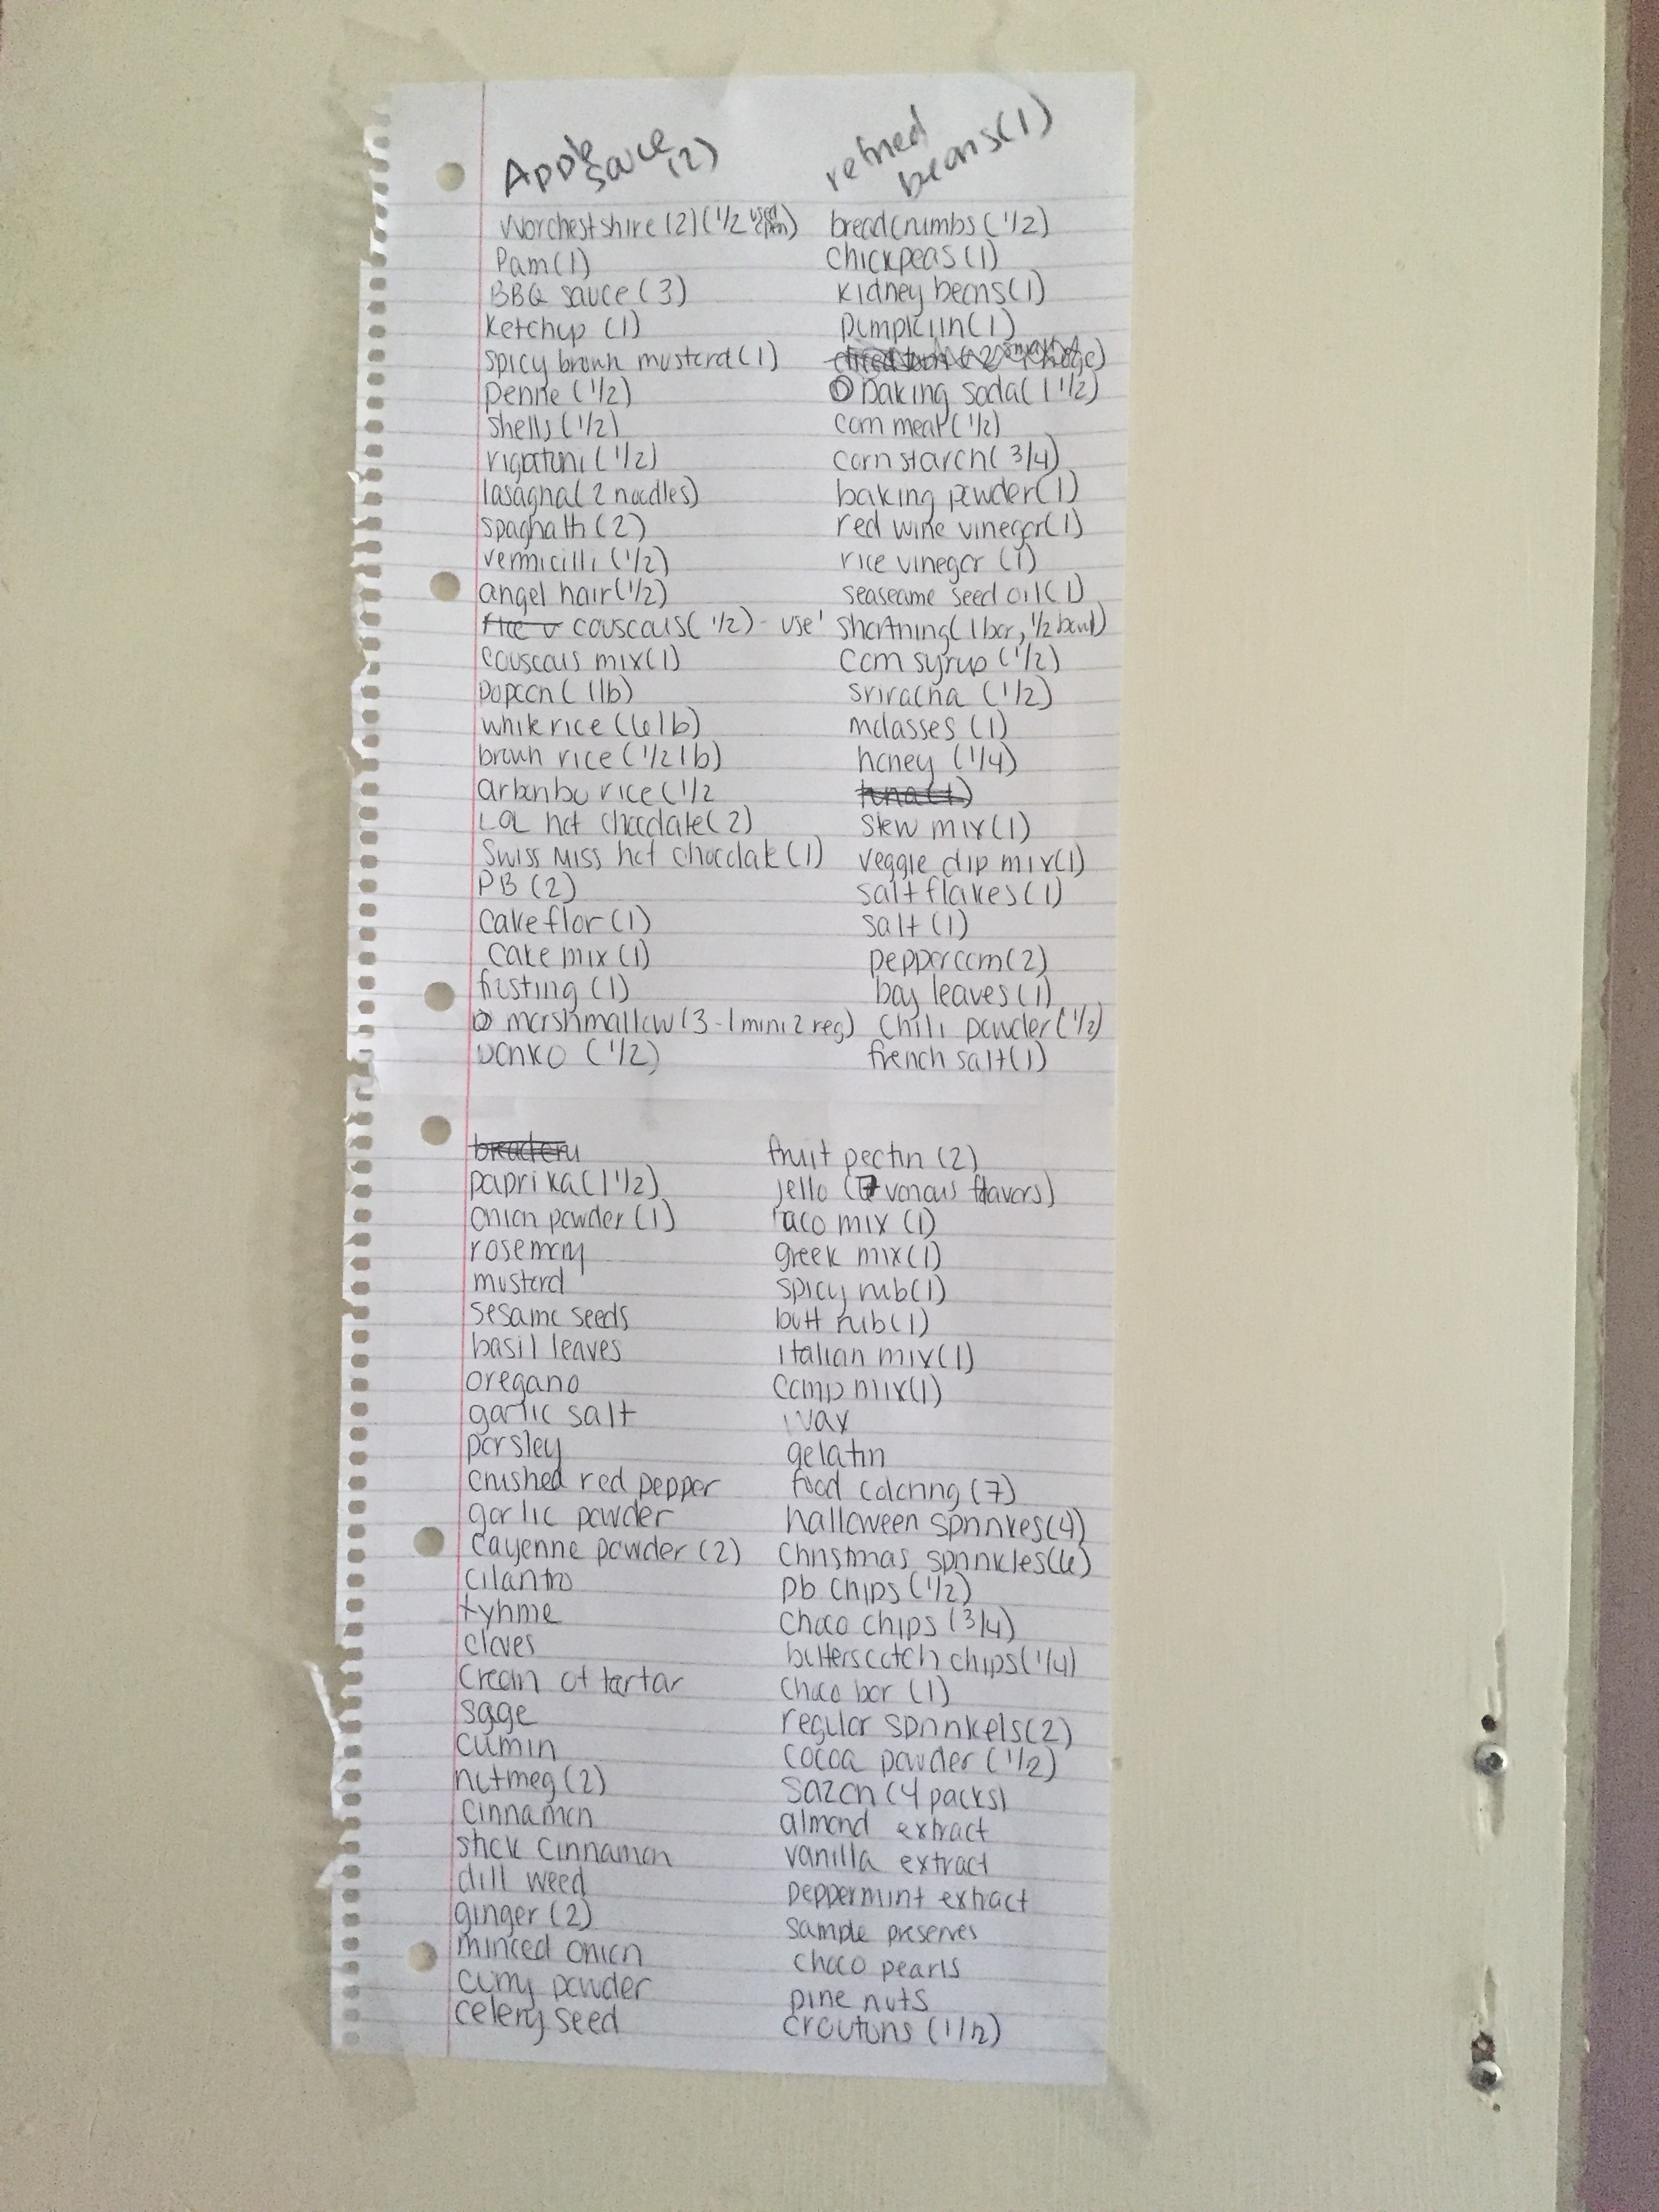 Apple
sauce (2)
Worchestshire (2) (1/2 used open)
Pam (1)
BBQ sauce (3)
Ketchup (1)
spicy brown mustard (1)
penne (1/2)
shells (1/2)
rigatoni (1/2)
lasagna (2 noodles)
spaghatti (2)
vermicilli (1/2)
angel hair (1/2)
couscous (1/2) - use!
couscous mix (1)
popcorn (1lb)
white rice (6 lb)
brown rice (1/2 lb)
rice (1/2
LOL hot chocolate (2)
Swiss Miss hot chocolate (1)
PB (2)
cake flor (1)
cake mix (1)
frosting (1)
marshmallow (3 - 1 mini 2 reg)
panko (1/2)
refried
beans (1)
breadcrumbs (1/2)
chickpeas (1)
kidney beans (1)
pumpkiin (1)
baking soda (1 1/2)
corn meal (1/2)
corn starch (3/4)
baking powder (1)
red wine vinegar (1)
rice vinegar (1)
seaseame seed oil (1)
shortning (1 bar, 1/2 bowl)
corn syrup (1/2)
sriracha (1/2)
molasses (1)
honey (1/4)
tuna (1)
stew mix (1)
veggie dip mix (1)
salt flakes (1)
salt (1)
peppercorn (2)
bay leaves (1)
chili powder (1/2)
french salt (1)
breadcru
paprika (1 1/2)
onion powder (1)
rosemary
mustard
sesame seeds
basil leaves
oregano
garlic salt
parsley
crushed red pepper
garlic powder
cayenne powder (2)
cilantro
tyhme
cloves
cream of tartar
sage
cumin
nutmeg (2)
cinnamon
stick cinnamon
dill weed
ginger (2)
minced onion
curry powder
celery seed
fruit pectin (2)
jello (7 various flavors)
taco mix (1)
greek mix (1)
spicy rub (1)
butt rub (1)
italian mix (1)
camp mix (1)
wax
gelatin
food coloring (7)
halloween sprinkes (4)
christmas sprinkles (6)
pb chips (1/2)
choco chips (3/4)
butterscotch chips (1/4)
choco bar (1)
regular sprinkels (2)
cocoa powder (1/2)
sazon (4 packs)
almond extract
vanilla extract
peppermint extract
sample preserves
choco pearls
pine nuts
croutons (1/2)